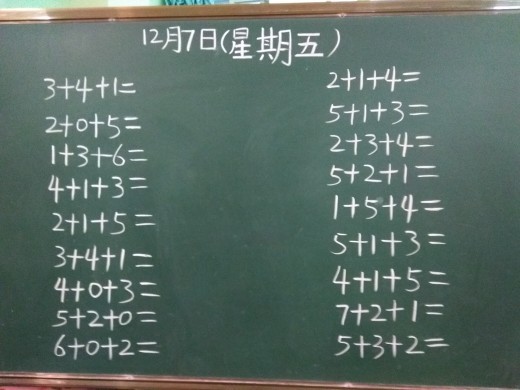 12月7日(星期五)
3+4+1=
2+0+5=
1+3+6=
4+1+3=
2+1+5=
3+4+1=
4+0+3=
5+2+0=
6+0+2=
2+1+4=
5+1+3=
2+3+4=
5+2+1=
1+5+4=
5+1+3=
4+1+5=
7+2+1=
5+3+2=